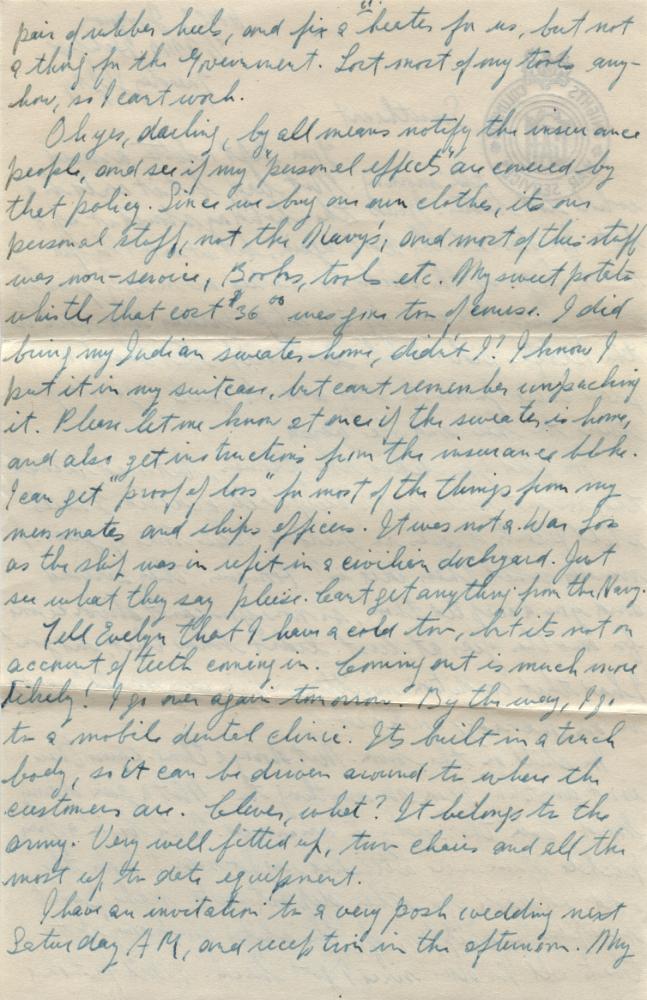 pair of rubber heels, and fix a heater for us, but not
a thing for the Government. Lost most of my tools any-
how, so I cant work.
Oh yes, darling, by all means notify the insurance
people, and see if my "personel effects" are covered by
that policy. Since we buy our own clothes, its our
personal stuff, not the Navy's, and most of this stuff
was non-service, Books, tools etc. My sweet potato
whistle that cost $36 00 was gone too of course. I did
bring my Indian sweater home, didn't I? I know I
put it in my suitcase, but cant remember unpacking
it. Please let me know at once if the sweater is home,
and also get instructions from the insurance bloke.
I can get "proof of loss" for most of the things from my
mess mates and ships officers. It was not a War Loss
as the ship was in refit in a civilian dockyard. Just
see what they say please. Cant get anything from the Navy.
Tell Evelyn that I have a cold too, but its not on
account of teeth coming in. Coming out is much more
likely! I go over again tomorrow. By the way, I go
to a mobile dental clinic. Its built in a truck
body, so it can be driven around to where the
customers are. Clever, what? It belongs to the
army. Very well fitted up, two chairs and all the
most up to date equipment.
I have an invitation to a very posh wedding next
Saturday AM, and reception in the afternoon. My